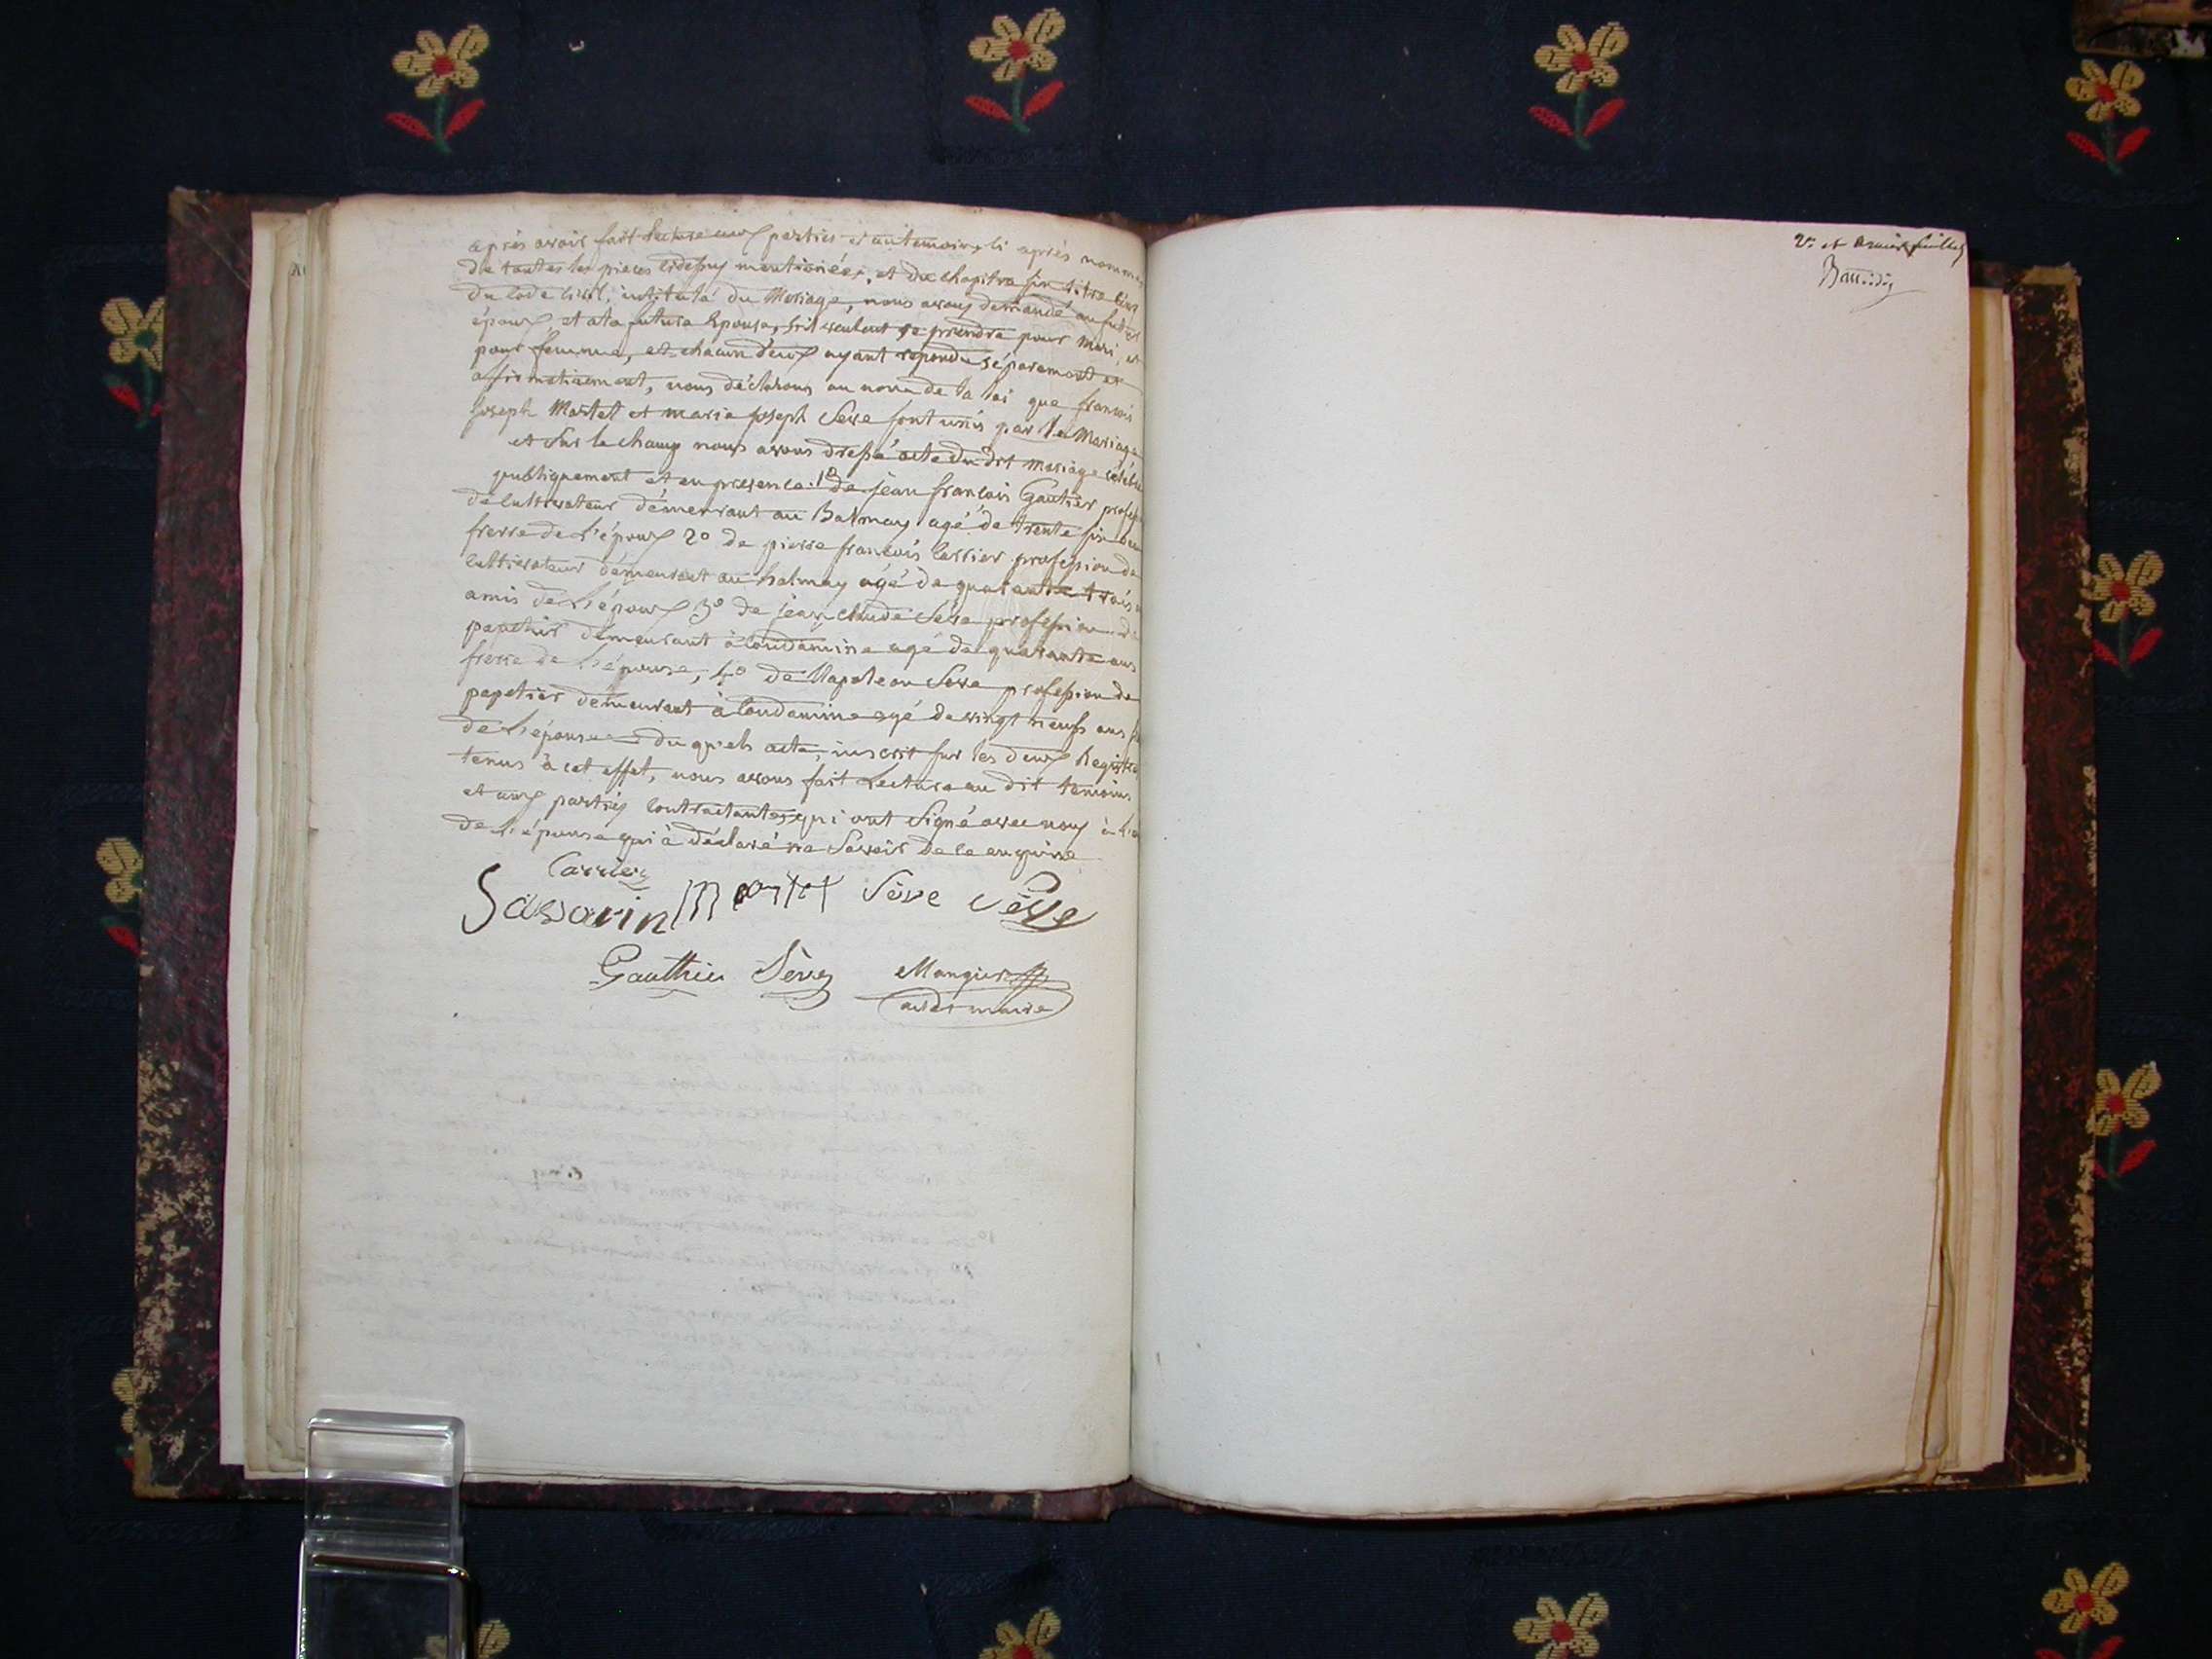 après avoir fait Lecture aux parties et au temoins, ci après nommés
de toutes les pieces cidessus mentionées, et du chapitre six titre cinq
du Code Civil, intitulé du Mariage, nous avons demandé au futur
époux et a la future Epouse, s'il veulent se prendre pour mari, et
pour femme, et chacun d'eux ayant repondu séparement et
affirmativement, nous déclarons au nom de la loi que francois
Joseph Martet et marie joseph Seve sont unis par le Mariage
et sur le champ nous avons dressé acte du dit mariage célébré
publiquement et en presence: 1º de jean francois Gautier profession
de Cultivateur démeurant au Balmay agé de trente six
frerre de L'époux 2º de pierre francois Carrier profession de
Cultivateur démeurant au balmay agé de quarante trois
amis de L'époux 3º de jean claude Seve profession de
papetier démeurant à Condamine agé de quarante ans
frerre de L'épouse, 4º de Napoleon Seve profession de
papetier démeurant à Condamine agé de vingt neufs ans
de L'épouse du quels acte, inscrit sur les deux Registres
tenus à cet effet, nous avons fait Lecture au dit temoins
et aux parties Contractantes, qui ont Signé avec nous à
de L'épouse qui à déclaré ne Savoir de ce enquise
Carrier
Savarin Martet Sève Sève
Gauthier Sève Mangier
adt maire
2e et dernier feuillet